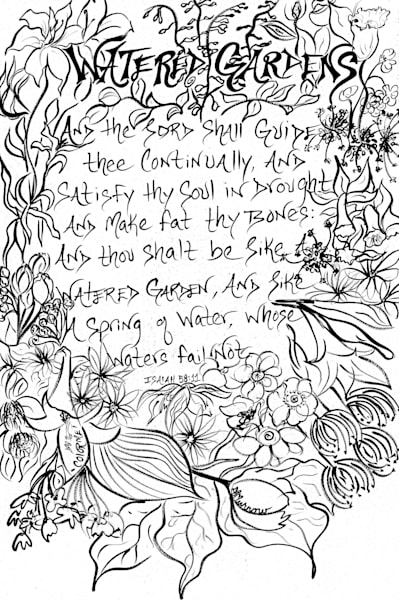 WATERED GARDENS
And the LORD Shall Guide
thee Continually, And
Satisfy thy Soul in Drought
And Make fat thy Bones:
And thou shalt be Like A
WATERED GARDEN, And Like
A Spring of Water, Whose
Waters fail Not.
ISAIAH 58:11